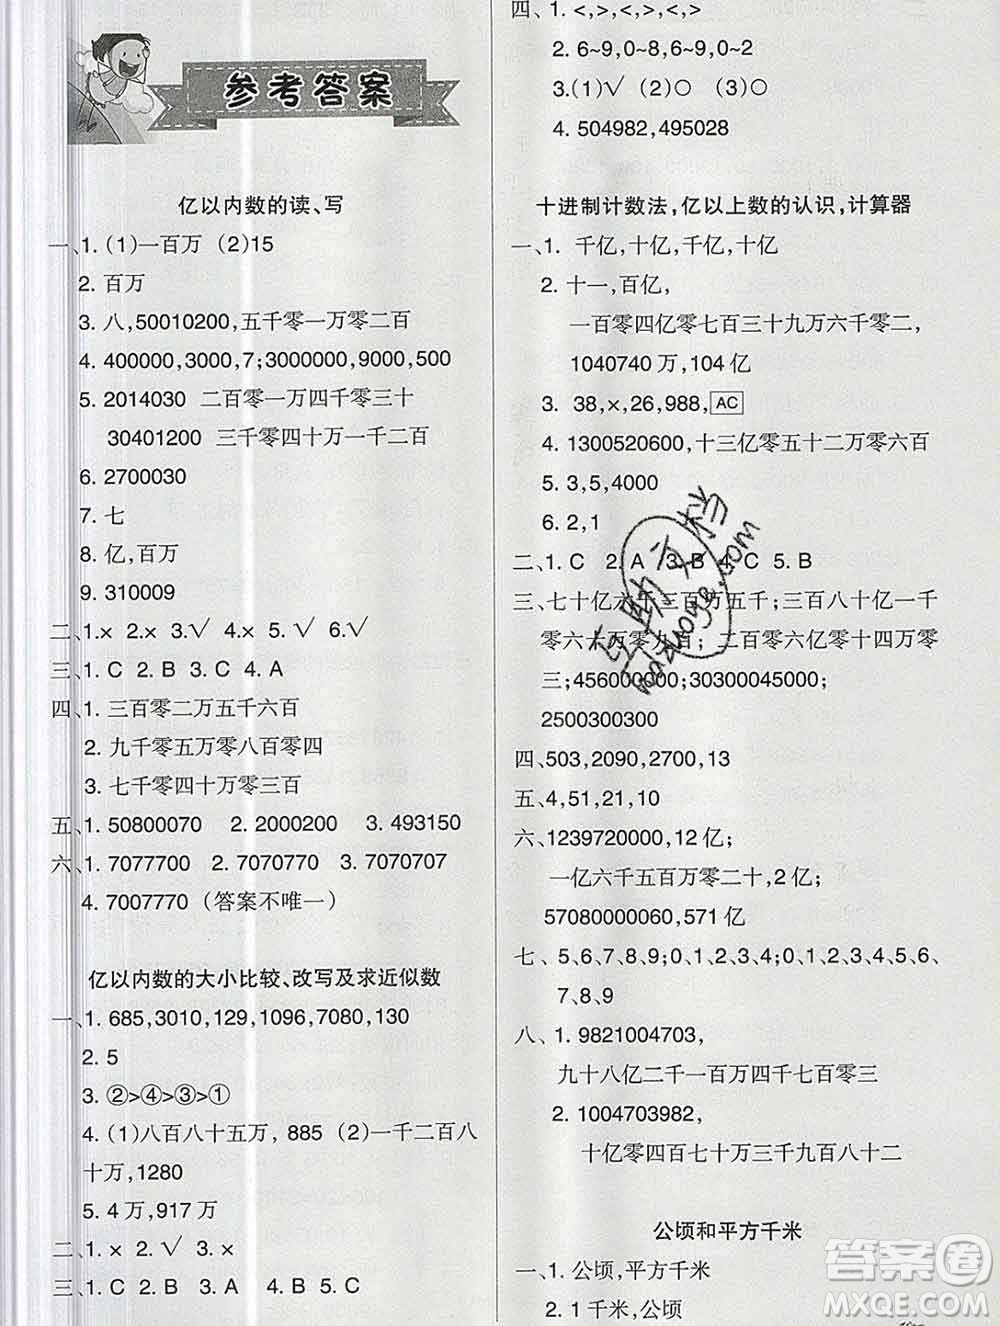 参考答案
亿以内数的读、写
一、1. (1)一百万 (2)15
2. 百万
3. 八,50010200,五千零一万零二百
4. 400000,3000,7;3000000,9000,500
5. 2014030 二百零一万四千零三十
30401200 三千零四十万一千二百
6. 2700030
7. 七
8. 亿,百万
9. 310009
二、1.× 2.× 3.√ 4.× 5.√ 6.√
三、1. C 2. B 3. C 4. A
四、1. 三百零二万五千六百
2. 九千零五万零八百零四
3. 七千零四十万零三百
五、1. 50800070 2. 2000200 3. 493150
六、1. 7077700 2. 7070770 3. 7070707
4. 7007770 (答案不唯一)
亿以内数的大小比较、改写及求近似数
一、1. 685,3010,129,1096,7080,130
2. 5
3. ②>④>③>①
4. (1)八百八十五万, 885 (2)一千二百八
十万,1280
5. 4 万,917 万
二、1. × 2. √ 3. ×
三、1. C 2. B 3. A 4. B 5. C
四、1. <,>,<,>,<,>
2. 6~9,0~8,6~9,0~2
3. (1)√ (2)○ (3)○
4. 504982,495028
十进制计数法,亿以上数的认识,计算器
一、1. 千亿,十亿,千亿,十亿
2. 十一,百亿,
一百零四亿零七百三十九万六千零二,
1040740 万,104 亿
3. 38,×,26,988,AC
4. 1300520600,十三亿零五十二万零六百
5. 3,5,4000
6. 2,1
二、1. C 2. A 3. B 4. C 5. B
三、七十亿六千三百万五千;三百八十亿一千
零六十万零九百; 二百零六亿零十四万零
三;456000000;30300045000;
2500300300
四、503,2090,2700,13
五、4,51,21,10
六、1239720000,12 亿;
一亿六千五百万零二十,2 亿;
57080000060,571 亿
七、5、6、7、8、9;0、1、2、3、4;0、1、2、3、4、5、6、
7、8、9
八、1. 9821004703,
九十八亿二千一百万四千七百零三
2. 1004703982,
十亿零四百七十万三千九百八十二
公顷和平方千米
一、1. 公顷,平方千米
2. 1 千米,公顷
答案圈
MXQE.COM